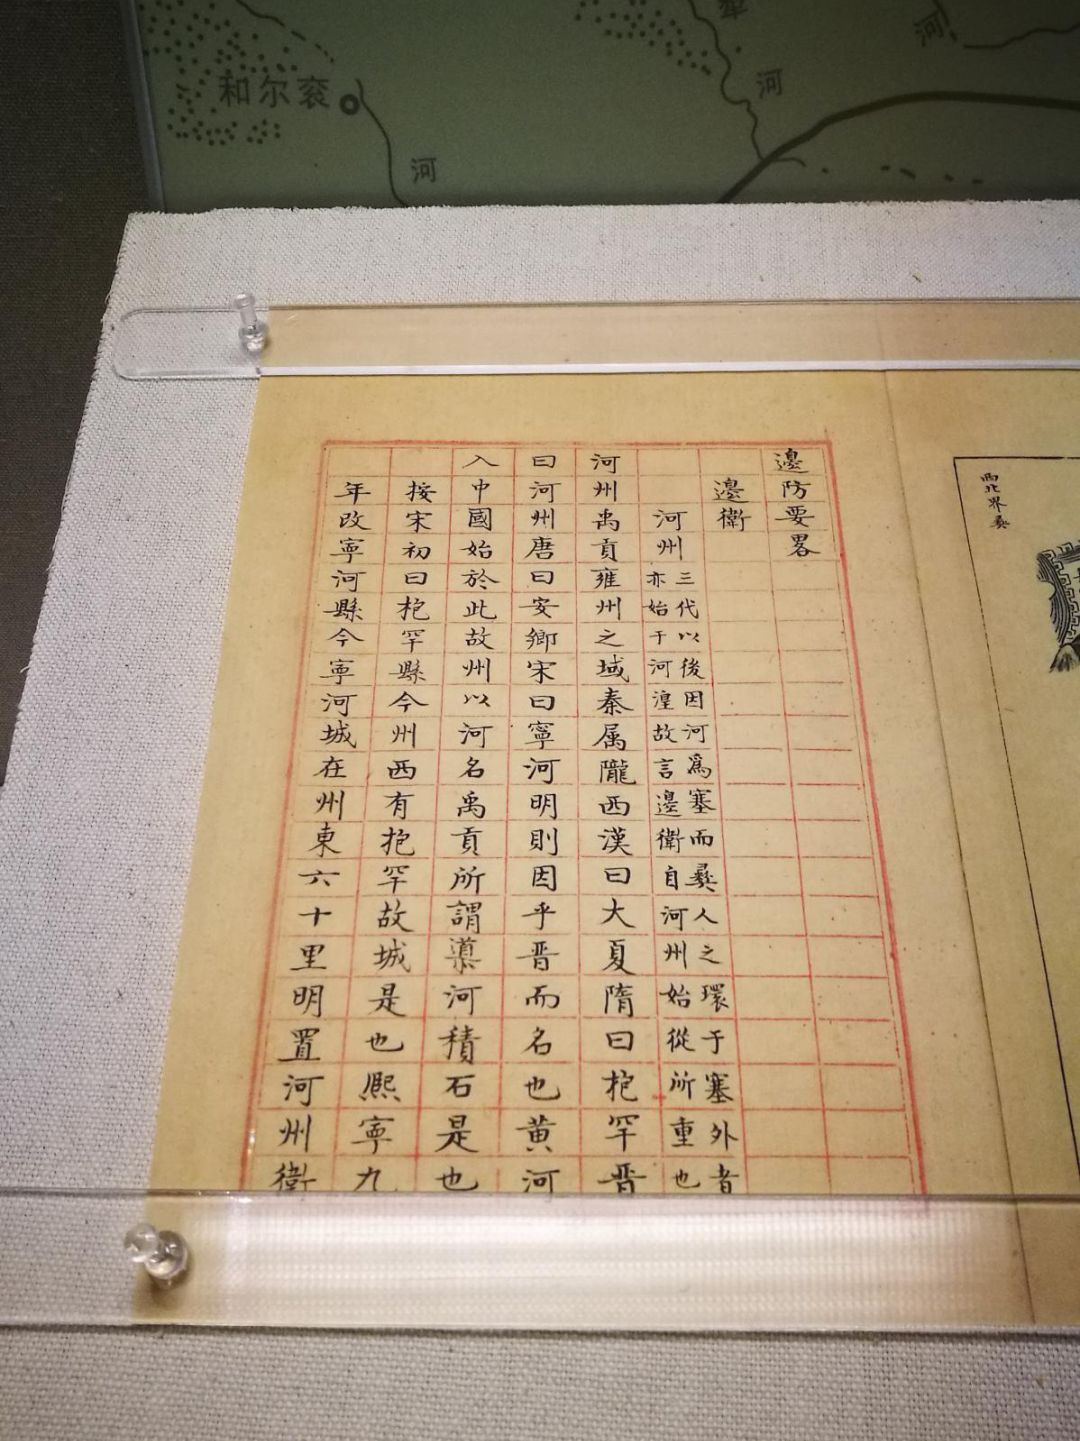 和尔衮
河
河
河
西北界彝
邊防要畧
邊衛
河州
三代以後因河爲塞而彝人之環于塞外者
亦始于河湟故言邊衛自河州始從所重也
河州禹貢雍州之域秦属隴西漢曰大夏隋曰抱罕晋
曰河州唐曰安鄉宋曰寧河明則因乎晋而名也黄河
入中國始於此故州以河名禹貢所謂導河積石是也
按宋初曰抱罕縣今州西有抱罕故城是也熈寧九
年改寧河縣今寧河城在州東六十里明置河州衛